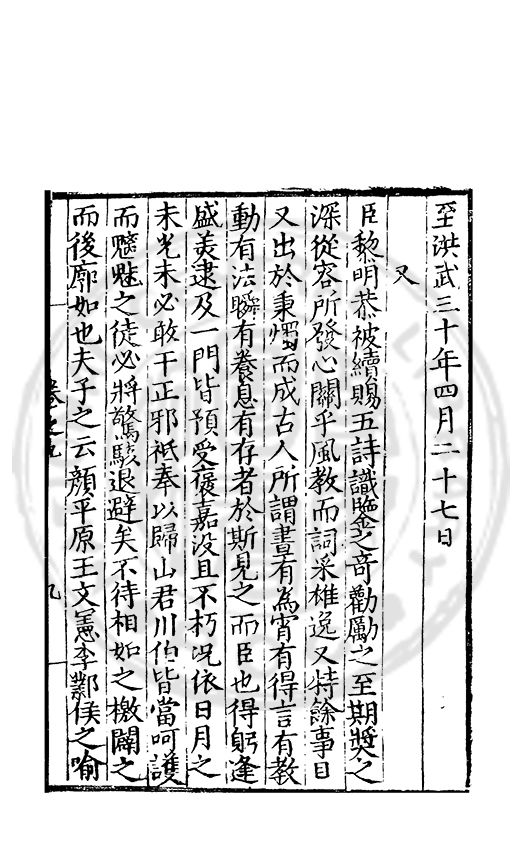 至洪武三十年四月二十七日
又
臣黎明恭被續賜五詩識鑒之奇勸勵之至期奬之
深從容所發心關乎風教而詞采雄逸又特餘事且
又出於秉燭而成古人所謂晝有為宵有得言有教
動有法瞬有養息有存者於斯見之而臣也得躬逢
盛美逮及一門皆預受褒嘉没且不朽况依日月之
末光未必敢干正邪祗奉以歸山君川伯皆當呵護
而魑魅之徒必將驚駭退避矣不待相如之檄闢之
而後廓如也夫子之云顔平原王文憲李鄴侯之喻
卷之九
九